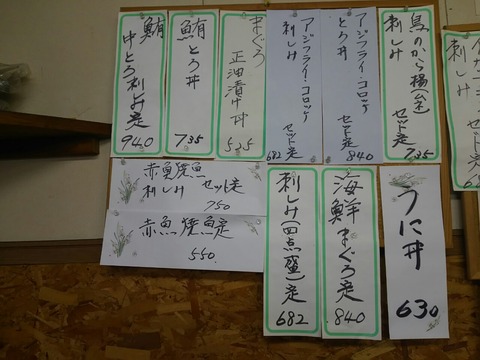 鮪
中とろ刺しみ定
940
鮪とろ丼
735
まぐろ
正油漬け丼
525
アジフライ・コロッケ
刺しみ
セット定
682
アジフライ・コロッケ
とろ丼
セット定
840
鳥のから揚(小)
刺しみ
セット定
735
刺しみ
赤魚焼魚
刺しみ セット定
750
赤魚焼魚定
550
刺しみ(四点盛)定
682
海鮮まぐろ定
840
うに丼
630